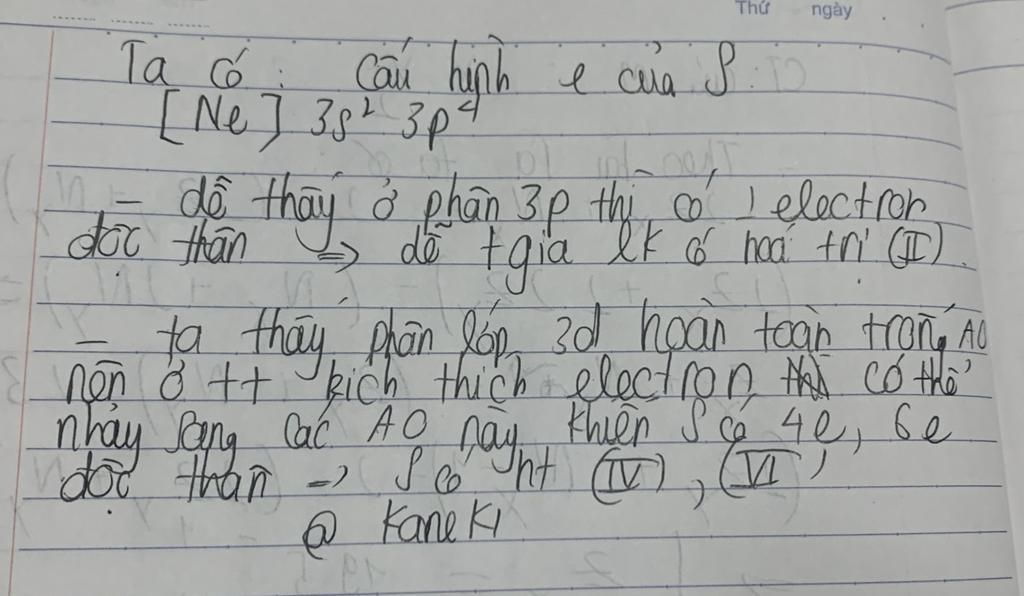 Thứ ngày
Ta có : Cấu hình e của S
[Ne] 3s² 3p⁴
- dễ thấy ở phần 3p thì có 1 electron
độc thân => dễ tgia lk có hoá trị (II).
- ta thấy phân lớp 3d hoàn toàn trống AO
nên ở tt kích thích electron có thể
nhảy sang các AO này khiến S có 4e, 6e
độc thân -> S có ht (IV), (VI)
@ Kaneki